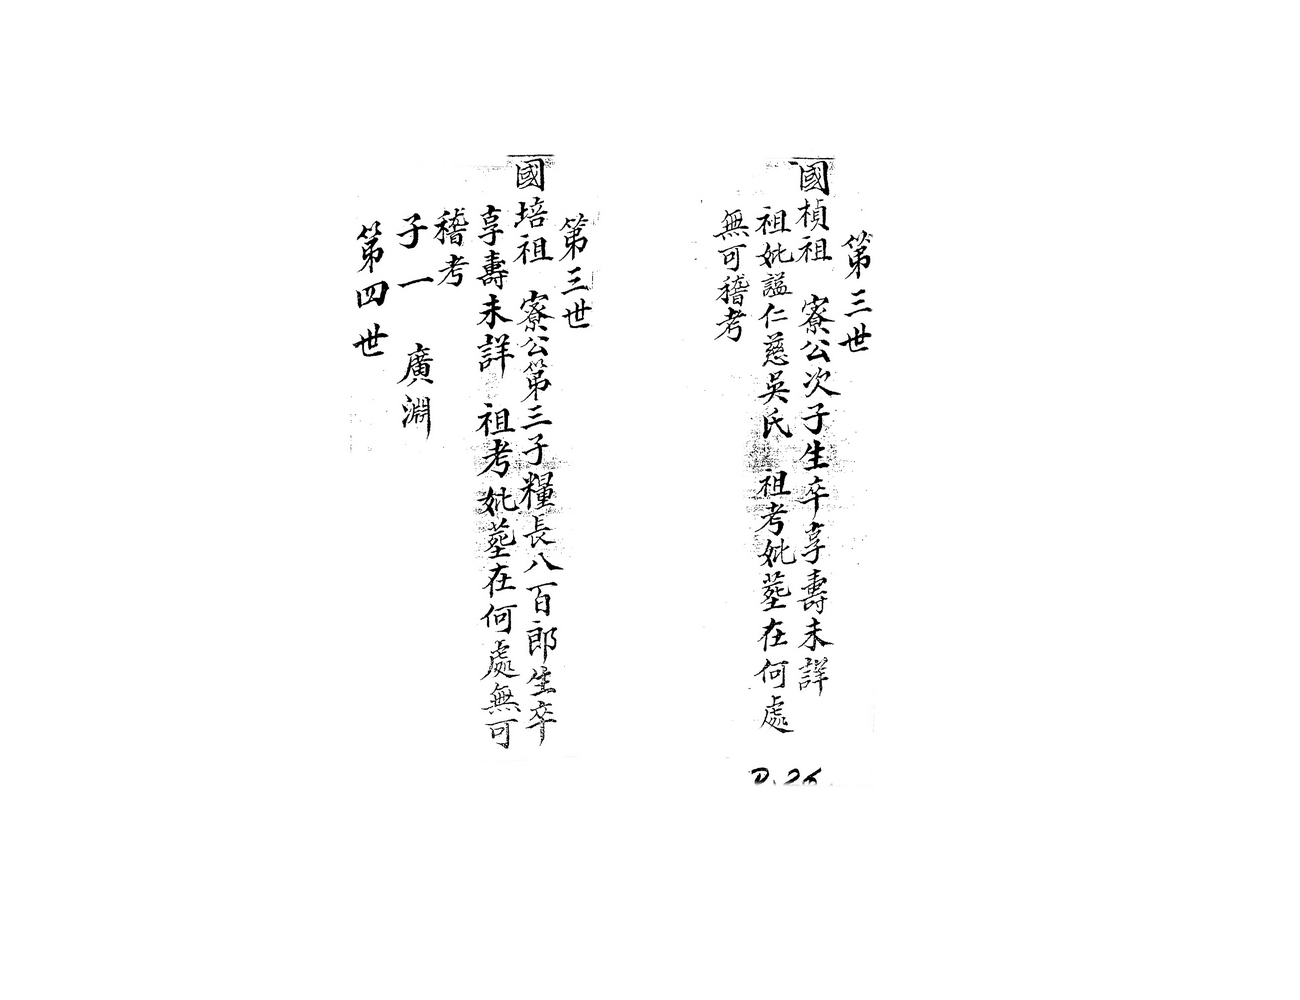 第三世
國楨祖　寮公次子生卒享壽未詳
祖妣諡仁慈吳氏　祖考妣墓在何處
無可稽考
P.26
第三世
國培祖　寮公第三子糧長八百郎生卒
享壽未詳　祖考妣墓在何處無可
稽考
子一　廣淵
第四世